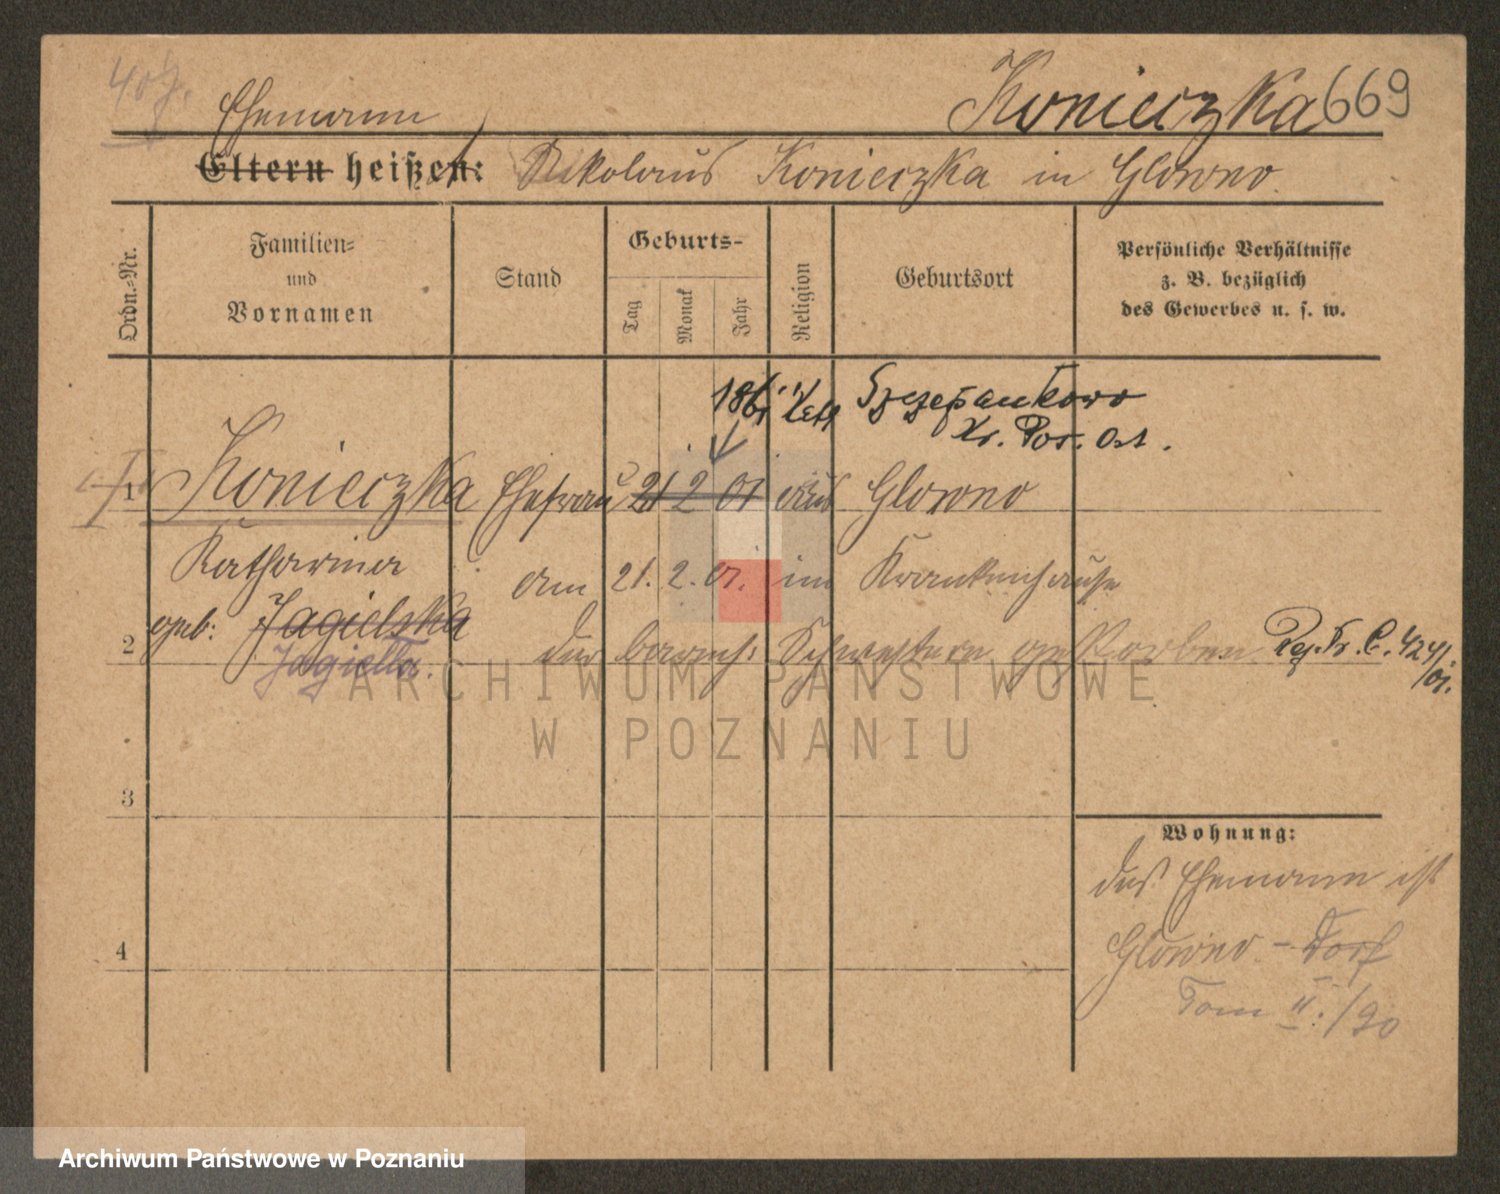 40 J.
Ehemann
Konieczka 669
Eltern heißen: Nikolaus Konieczka in Glowno.
Ordn.-Nr.
Familien-
und
Vornamen
Stand
Geburts-
Tag
Monat
Jahr
Religion
Geburtsort
Persönliche Verhältnisse
z. B. bezüglich
des Gewerbes u. s. w.
1861 kath Szczepankowo
Kr. Pos. Ost.
1 Konieczka Ehefrau 21 2 01 aus Glowno
Katharina am 21. 2. 01. im Krankenhause
2 geb: Jagielska der barmh: Schwestern gestorben Reg. Nr. C. 424/01.
Jagiella.
ARCHIWUM PAŃSTWOWE
W POZNANIU
3
Wohnung:
des Ehemann ist
4
Glowno - Dorf
Tom II./90
Archiwum Państwowe w Poznaniu